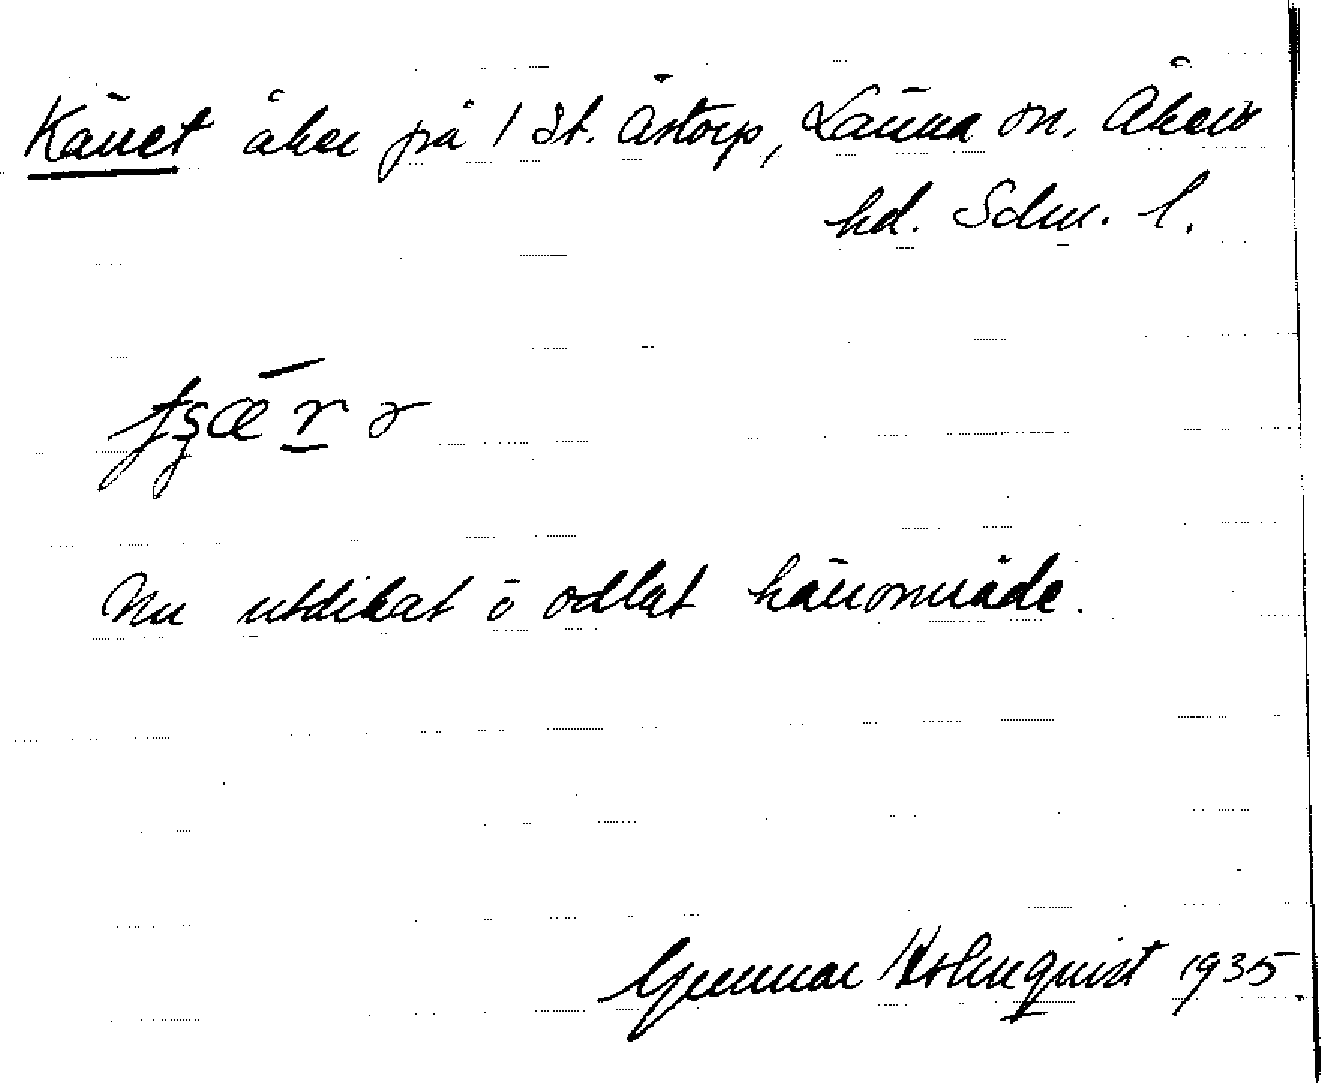 Kärret åker på 1 St. Åstorp, Länna sn. Åkers
hd. Sdm. l.
Nu utdikat o odlat kärrområde.
Gunnar Holmquist 1935